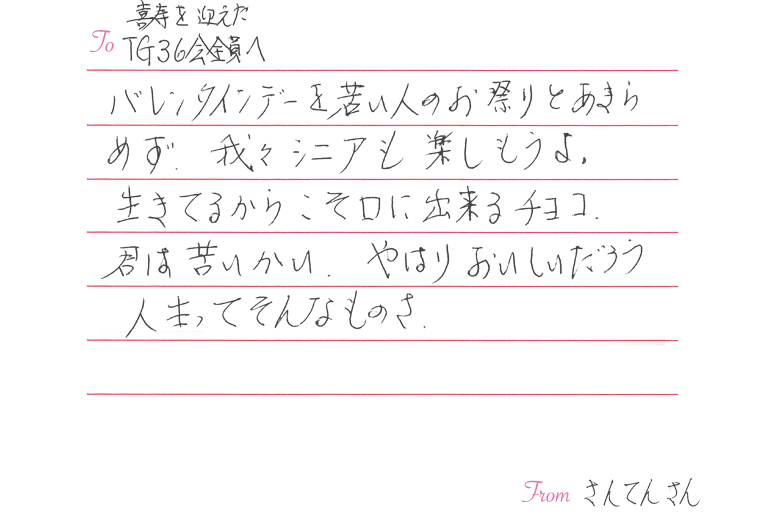 喜寿を迎えた
To TG36会全員へ
バレンタインデーを苦い人のお祭りとあきら
めず、我々シニアも楽しもうよ。
生きてるからこそ口に出来るチョコ.
君は苦いかい. やはりおいしいだろう
人生ってそんなものさ.
From さんてんさん